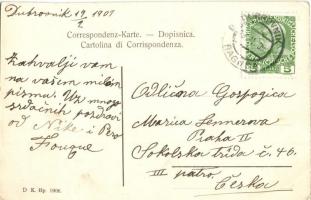 Dubrovnik 19/2 1909
Correspondenz-Karte. — Dopisnica.
Cartolina di Corrispondenza.
Zahvalji vam
na vašem milim
pismu. Uz mnogo
srdačnih pozdravi
od Nike i Pero
Fouque
5
Odlična Gospogica
Marica Lennerova
Praha II
Sokolska třída č. 46.
III patro.
Česka
D. K. Rp. 1908.